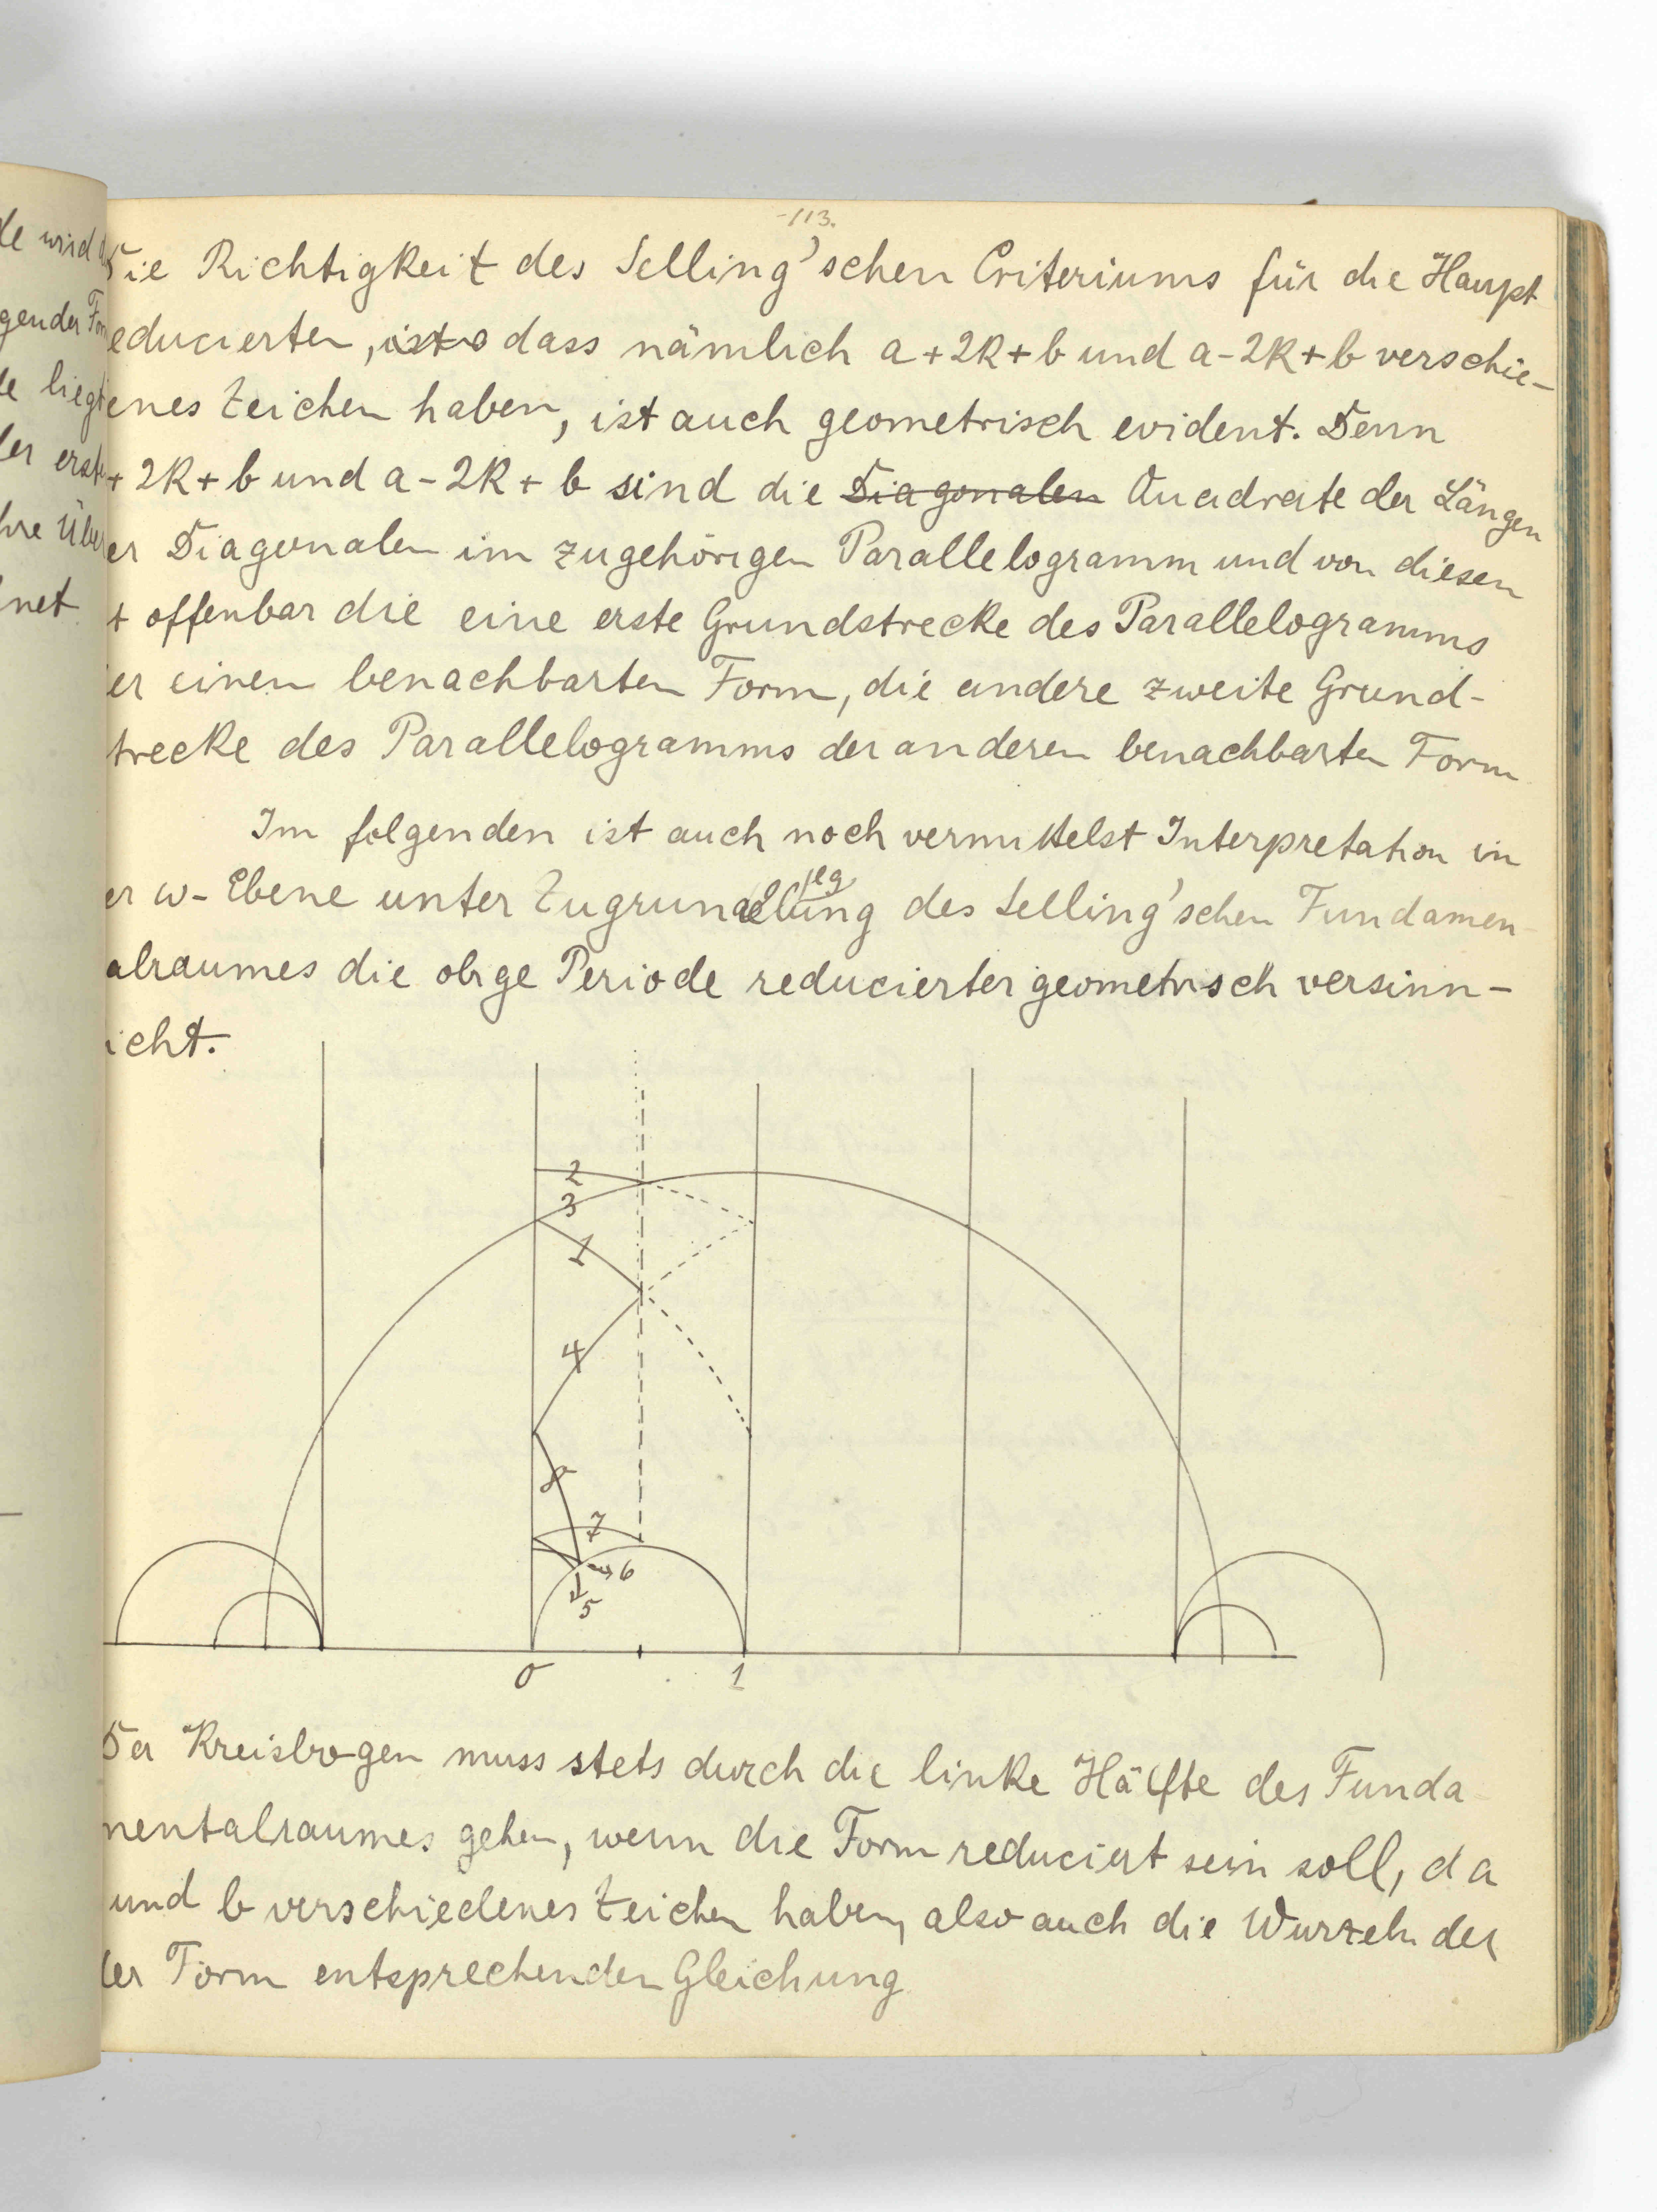 -113.
Die Richtigkeit des Selling'schen Criteriums für die Haupt
educierten, ist dass nämlich a+2k+b und a-2k+b verschie-
enes Zeichen haben, ist auch geometrisch evident. Denn
+ 2k+b und a-2k+b sind die Diagonalen Quadrate der Längen
er Diagonalen im zugehörigen Parallelogramm und von diesen
t offenbar die eine erste Grundstrecke des Parallelogramms
er einen benachbarten Form, die andere zweite Grund-
trecke des Parallelogramms der anderen benachbarten Form
Im folgenden ist auch noch vermittelst Interpretation in
er w-Ebene unter Zugrundelegung des Selling'schen Fundamen
alraumes die obige Periode reducierter geometrisch versinn-
icht.
2
3
1
4
8
7
6
5
0 1
Der Kreisbogen muss stets durch die linke Hälfte des Funda
mentalraumes gehen, wenn die Form reduciert sein soll, da
und b verschiedenes Zeichen haben, also auch die Wurzeln der
der Form entsprechenden Gleichung
de wird
gender For
de liegt
der erste
hre Über
net